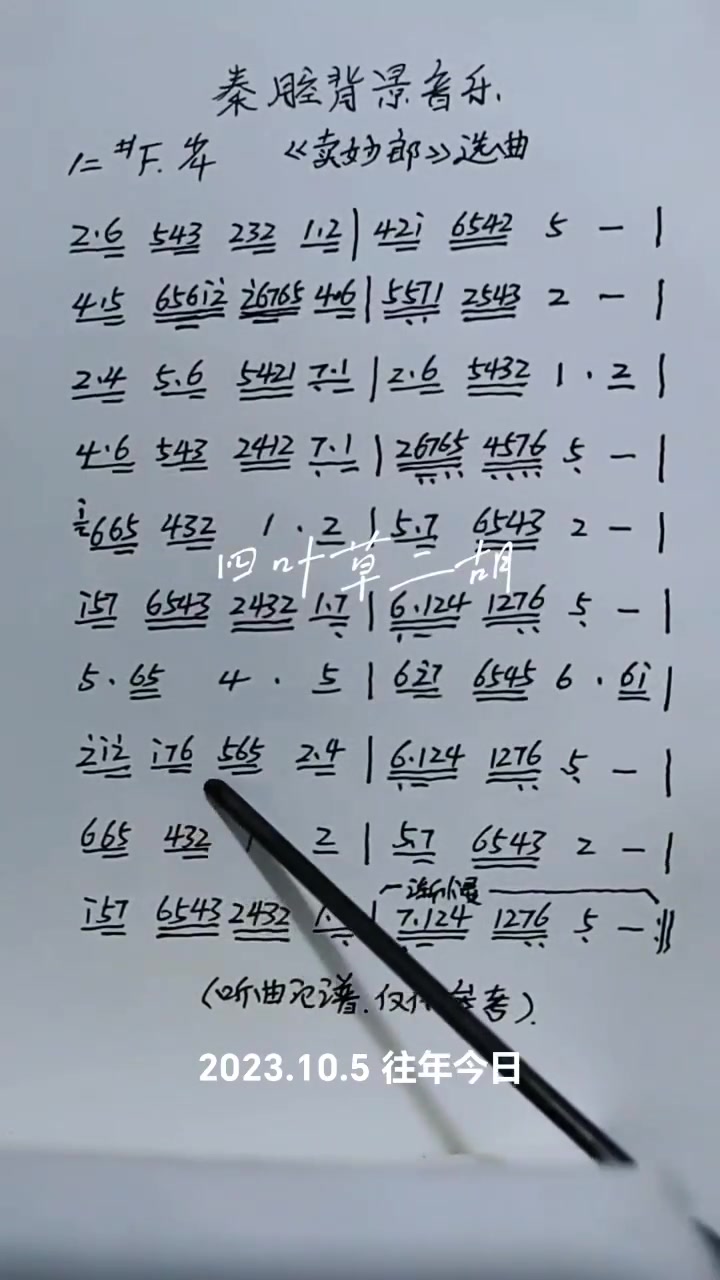 秦腔背景音乐
1=#F. 4/4 《卖妙郎》选曲
2·6 543 232 1·2 | 42i 6542 5 – |
4·5 656i2̇ 2̇6765 4·6 | 5571 2543 2 – |
2·4 5·6 5421 7·1 | 2·6 5432 1 · 2 |
4·6 543 2412 7·1 | 26765 4576 5 – |
i665 432 1 · 2 | 5·7 6543 2 – |
四叶草二胡
i57 6543 2432 1·7 | 6·124 1276 5 – |
5 · 65 4 · 5 | 62̇7 6545 6 · 6i |
2̇i2̇ i76 565 2·4 | 6·124 1276 5 – |
665 432 1 2 | 5·7 6543 2 – |
i57 6543 2432 1· | 7·124 1276 5 – :||
(听曲记谱.仅供参考).
2023.10.5 往年今日